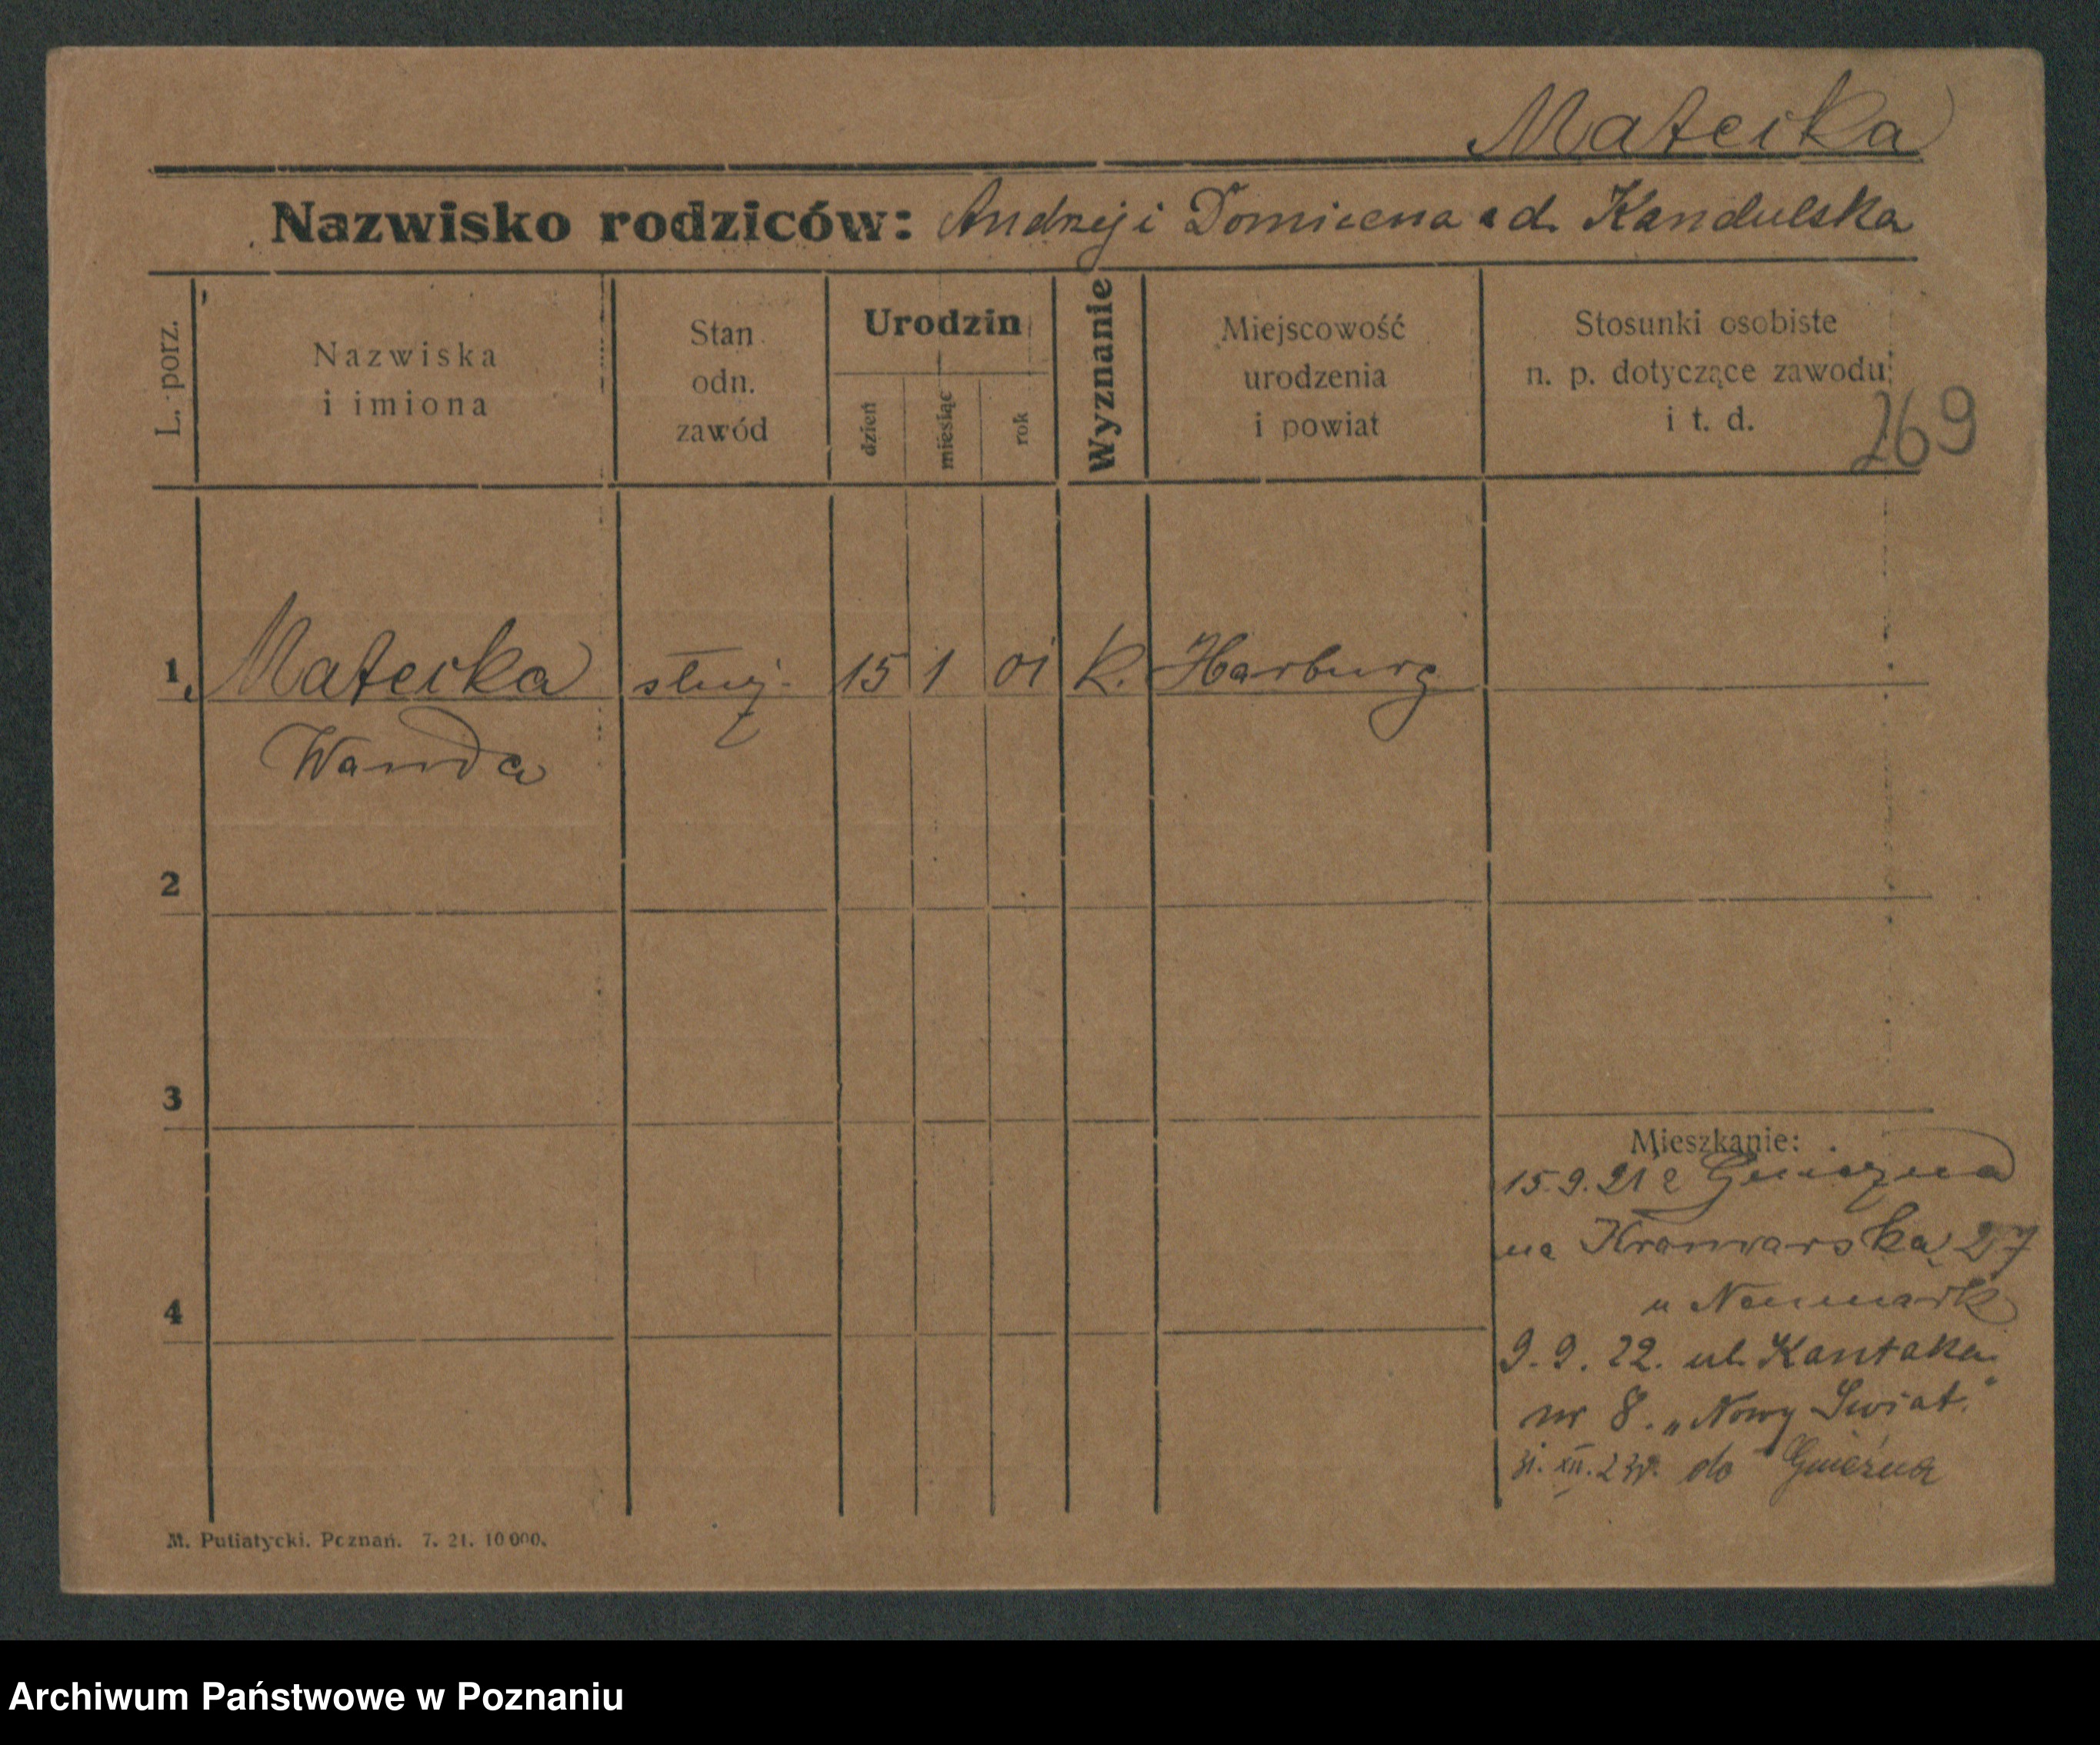 Matecka
Nazwisko rodziców: Andrzej i Domicena z d. Kandulska
L. porz.
Nazwiska
i imiona
Stan
odn.
zawód
Urodzin
dzień
miesiąc
rok
Wyznanie
Miejscowość
urodzenia
i powiat
Stosunki osobiste
n. p. dotyczące zawodu
i t. d.
269
1 Matecka służ. 15 1 01 K. Harburg
Wanda
2
3
4
Mieszkanie:
15.9.21 z Gniezna
na Kramarska 27
u Neumark
9.9.22. ul. Kantaka
nr 8. „Nowy Swiat."
31.XII.23r. do Gniezna
M. Putiatycki. Poznań. 7. 21. 10 000.
Archiwum Państwowe w Poznaniu